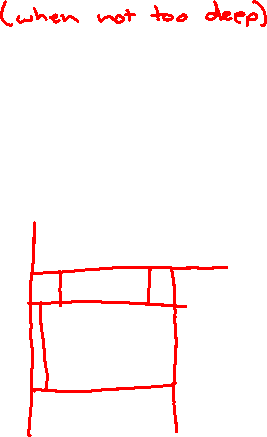 (when not too deep)